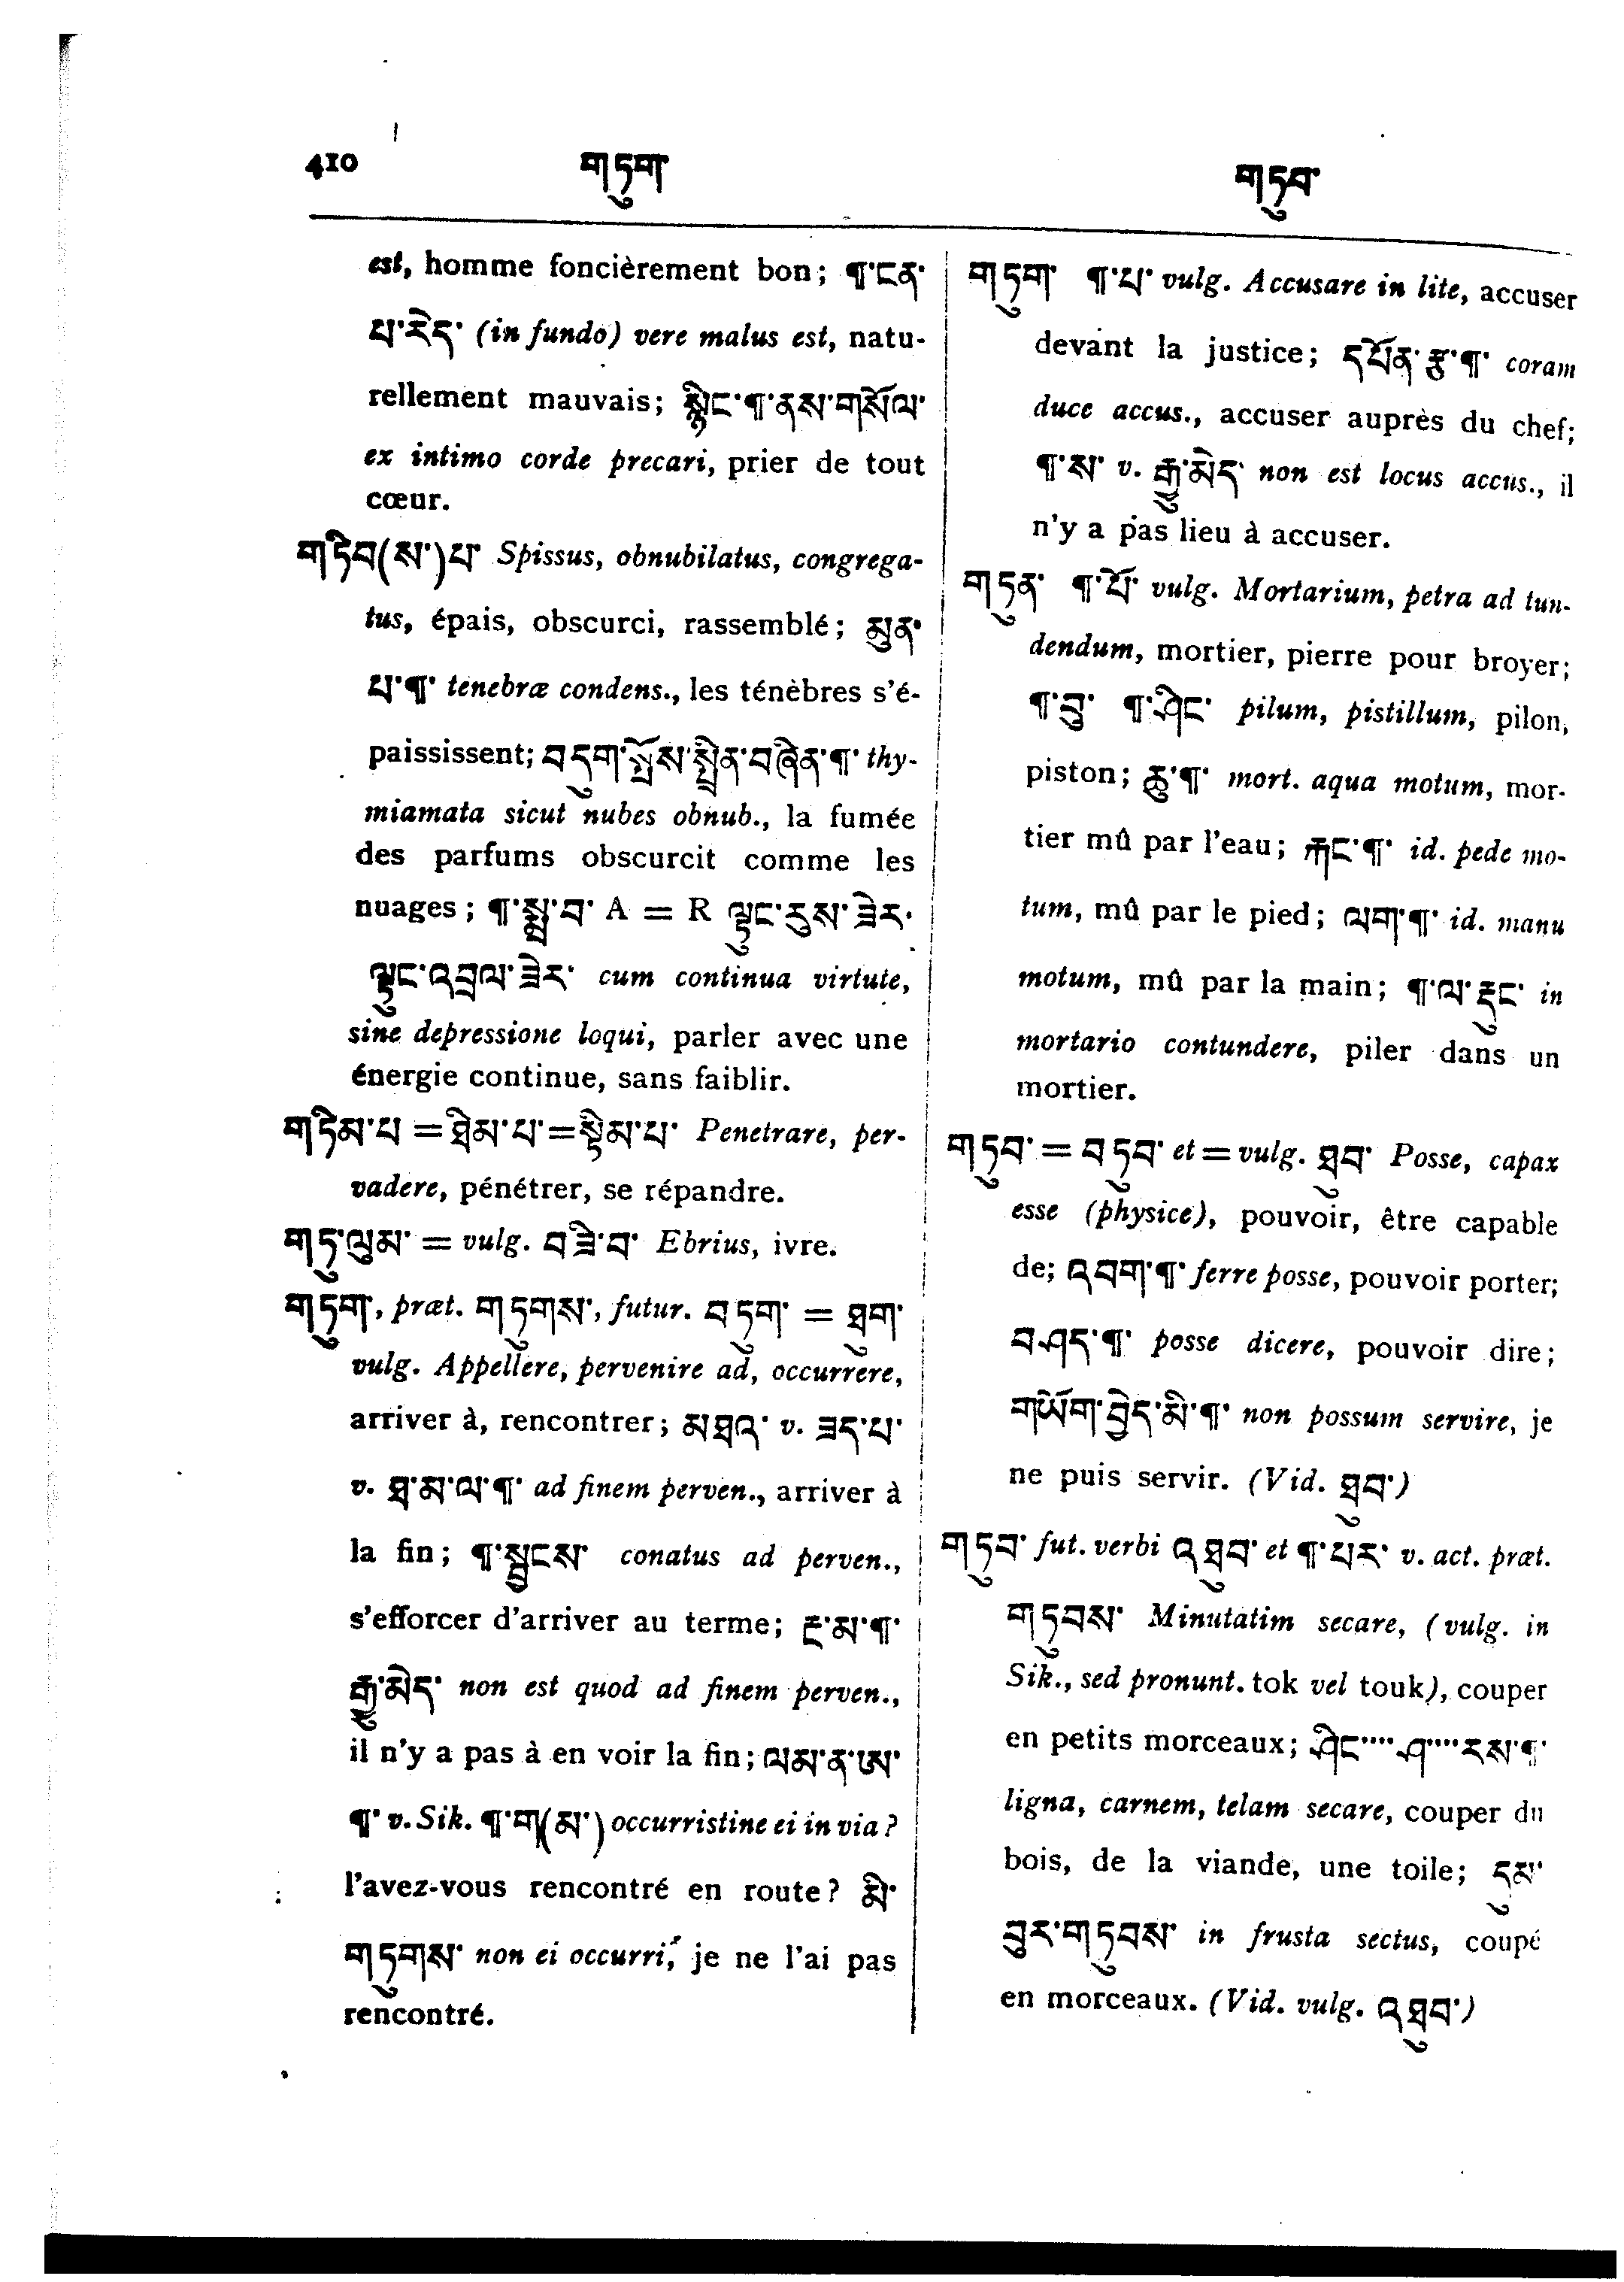 410 གཏུག་ གཏུབ་
est, homme foncièrement bon; ¶་ངན་
པ་རེད་ (in fundo) vere malus est, natu-
rellement mauvais; སྙིང་¶་ནས་གསོལ་
ex intimo corde precari, prier de tout
cœur.
གཏིབ(ས་)པ་ Spissus, obnubilatus, congrega-
tus, épais, obscurci, rassemblé; མུན་
པ་¶་ tenebræ condens., les ténèbres s'é-
paississent; བདུག་སྤོས་སྤྲིན་བཞིན་¶་ thy-
miamata sicut nubes obnub., la fumée
des parfums obscurcit comme les
nuages; ¶་སྨྲ་བ་ A = R ལྟུང་དུས་ཟེར་
ལྟུང་འབྲལ་ཟེར་ cum continua virtute,
sine depressione loqui, parler avec une
énergie continue, sans faiblir.
གཏིམ་པ = ཐིམ་པ་ = སྟིམ་པ་ Penetrare, per-
vadere, pénétrer, se répandre.
གཏུ་ལུམ་ = vulg. བཟི་བ་ Ebrius, ivre.
གཏུག་, præt. གཏུགས་, futur. བཏུག་ = ཐུག་
vulg. Appellere, pervenire ad, occurrere,
arriver à, rencontrer; མཐའ་ v. ཟད་པ་
v. ཐ་མ་ལ་¶་ ad finem perven., arriver à
la fin; ¶་སྦྱངས་ conatus ad perven.,
s'efforcer d'arriver au terme; རྔ་མ་¶་
རྒྱུ་མེད་ non est quod ad finem perven.,
il n'y a pas à en voir la fin; ལམ་ན་ཨ་
¶་ v. Sik. ¶་ག(མ་) occurristine ei in via?
l'avez-vous rencontré en route? མི་
གཏུགས་ non ei occurri, je ne l'ai pas
rencontré.
གཏུག་ ¶་པ་ vulg. Accusare in lite, accuser
devant la justice; དཔོན་རྩ་¶་ coram
duce accus., accuser auprès du chef;
¶་ས་ v. རྒྱུ་མེད་ non est locus accus., il
n'y a pas lieu à accuser.
གཏུན་ ¶་པོ་ vulg. Mortarium, petra ad tun-
dendum, mortier, pierre pour broyer;
¶་བུ་ ¶་ཤིང་ pilum, pistillum, pilon,
piston; ཆུ་¶་ mort. aqua motum, mor-
tier mû par l'eau; རྐང་¶་ id. pede mo-
tum, mû par le pied; ལག་¶་ id. manu
motum, mû par la main; ¶་ལ་རྡུང་ in
mortario contundere, piler dans un
mortier.
གཏུབ་ = བཏུབ་ et = vulg. ཐུབ་ Posse, capax
esse (physice), pouvoir, être capable
de; འབག་¶་ ferre posse, pouvoir porter;
བཤད་¶་ posse dicere, pouvoir dire;
གཡོག་བྱེད་མི་¶་ non possum servire, je
ne puis servir. (Vid. ཐུབ་)
གཏུབ་ fut. verbi འཐུབ་ et ¶་པར་ v. act. præt.
གཏུབས་ Minutatim secare, (vulg. in
Sik., sed pronunt. tok vel touk), couper
en petits morceaux; ཤིང་.... ཤ་.... རས་¶་
ligna, carnem, telam secare, couper du
bois, de la viande, une toile; དུམ་
བུར་གཏུབས་ in frusta sectus, coupé
en morceaux. (Vid. vulg. འཐུབ་)